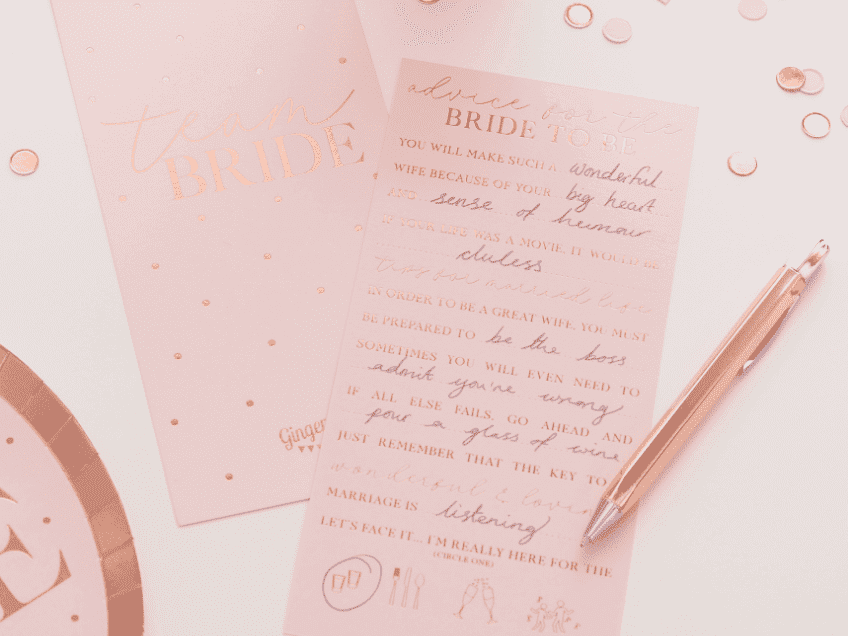 team
BRIDE
Ginger
advice for the
BRIDE TO BE
YOU WILL MAKE SUCH A wonderful
WIFE BECAUSE OF YOUR big heart
AND sense of humour
IF YOUR LIFE WAS A MOVIE, IT WOULD BE
cluless
tips for married life
IN ORDER TO BE A GREAT WIFE, YOU MUST
BE PREPARED TO be the boss
SOMETIMES YOU WILL EVEN NEED TO
admit you're wrong
IF ALL ELSE FAILS, GO AHEAD AND
pour a glass of wine
JUST REMEMBER THAT THE KEY TO
wonderful & loving
MARRIAGE IS listening
LET'S FACE IT... I'M REALLY HERE FOR THE
(CIRCLE ONE)
E